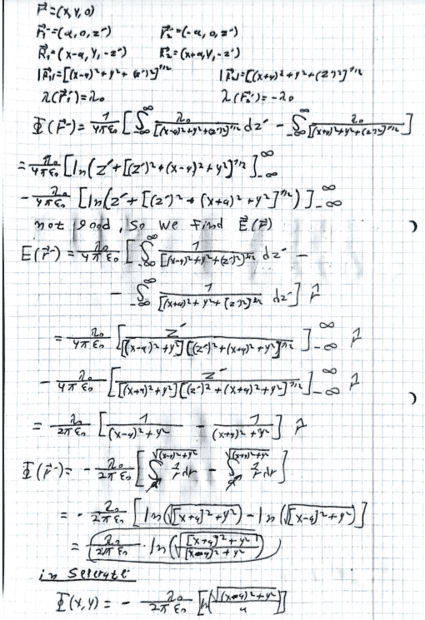 r⃗ = (x, y, 0)
r⃗₁' = (a, 0, z') r⃗₂' = (-a, 0, z')
R⃗₁ = (x-a, y, -z') R⃗₂ = (x+a, y, -z')
|R⃗₁| = [(x-a)² + y² + (z')²]^{1/2} |R⃗₂| = [(x+a)² + y² + (z')²]^{1/2}
λ(r⃗₁') = λ₀ λ(r⃗₂') = -λ₀
Φ(r⃗) = 1/4πε₀ [∫_{-∞}^{∞} λ₀/[(x-a)²+y²+(z')²]^{1/2} dz' - ∫_{-∞}^{∞} λ₀/[(x+a)²+y²+(z')²]^{1/2}]
= λ₀/4πε₀ [ln(z' + [(z')² + (x-a)² + y²]^{1/2}]_{-∞}^{∞}
- λ₀/4πε₀ [ln(z' + [(z')² + (x+a)² + y²]^{1/2})]_{-∞}^{∞}
not good, so we find E⃗(r⃗)
E(r⃗) = λ₀/4πε₀ [∫_{-∞}^{∞} 1/[(x-a)²+y²+(z')²]^{3/2} dz' -
- ∫_{-∞}^{∞} 1/[(x+a)²+y²+(z')²]^{3/2} dz'] r̂
= λ₀/4πε₀ [z'/[(x-a)²+y²][(z')²+(x+a)²+y²]^{1/2}]_{-∞}^{∞} r̂
- λ₀/4πε₀ [z'/[(x+a)²+y²][(z')²+(x+a)²+y²]^{1/2}]_{-∞}^{∞} r̂
= λ₀/2πε₀ [1/(x-a)²+y² - 1/(x+a)²+y²] r̂
Φ(r⃗) = - λ₀/2πε₀ [∫^{√(x-a)²+y²} 1/r dr - ∫^{√(x+a)²+y²} 1/r dr]
= - λ₀/2πε₀ [ln(√[x+a]²+y²) - ln(√[x-a]²+y²)]
= λ₀/2πε₀ · ln(√[x+a]²+y²/[x-a]²+y²)
in seperate
Φ(x,y) = - λ₀/2πε₀ [ln √(x-a)²+y²/a]